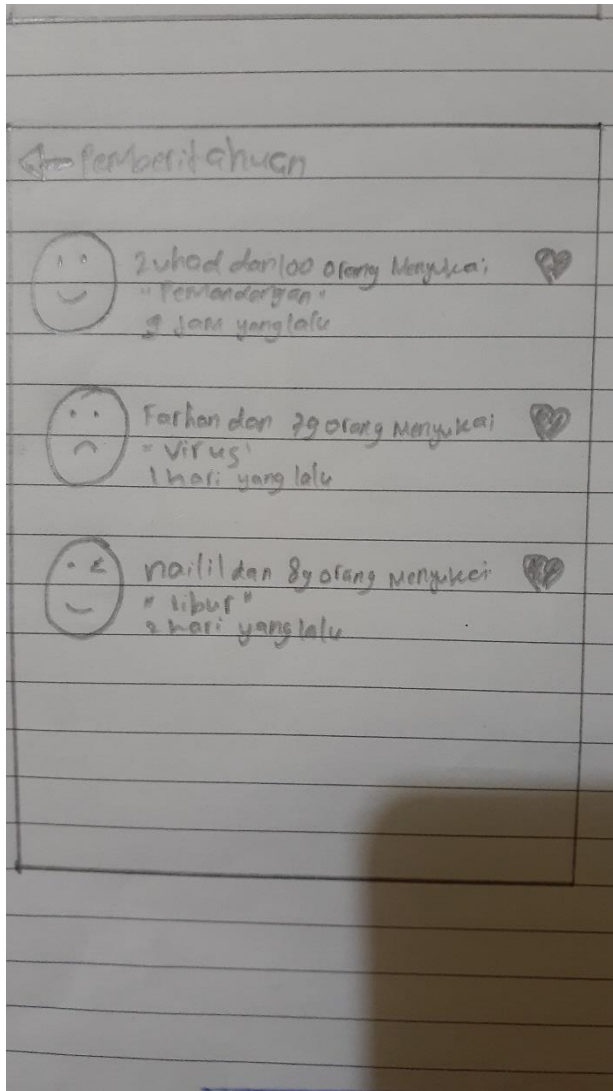 Pemberitahuan
Zuhad dan 100 orang Menyukai
"Pemandangan"
9 Jam yang lalu
Farhan dan 79 orang Menyukai
"Virus"
1 hari yang lalu
nailil dan 89 orang Menyukai
"libur"
2 hari yang lalu